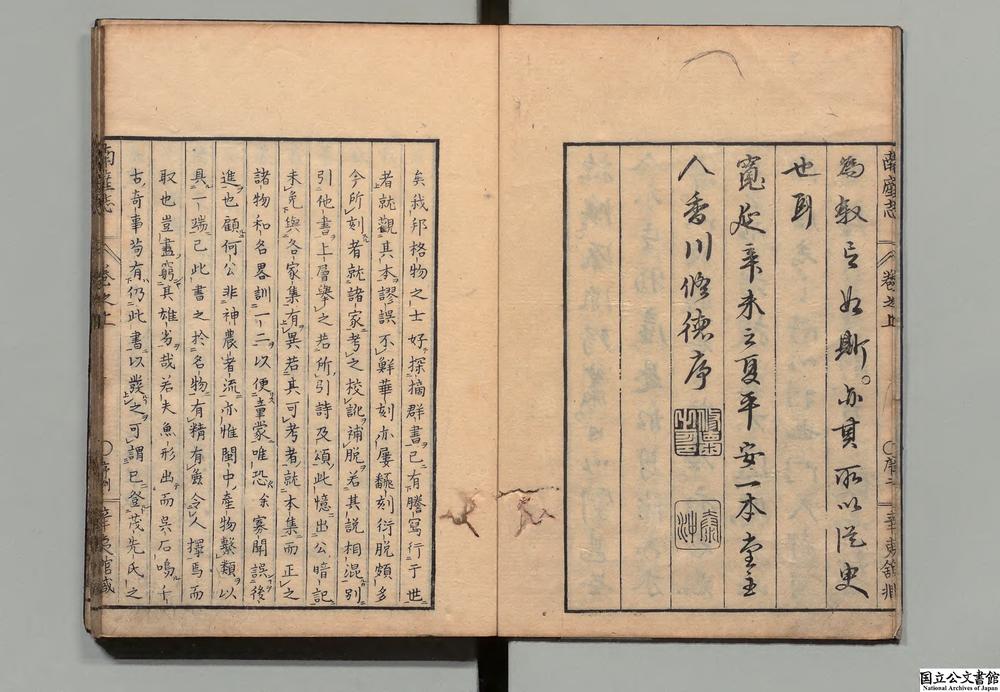 為叙言如斯。亦其所以從史
也耳
寛延辛未之夏平安一本堂主
人香川修德序
矣我邦格物之士好探摘群書已有謄寫行于世
者就觀其本謬誤不鮮華刻亦屢翻刻衍脱頗多
今所刻者就諸家考之校訛補脱若其説相混別
引他書上層舉之若所引詩及頌此憶出公暗記
未免與各家集有異若其可考者就本集而正之
諸物和名畧訓一二以便童蒙唯恐余寡聞誤後
進也顧何公非神農者流亦惟閩中産物繫類以
具一端已此書之於名物有精有僉令人擇焉而
取也豈盡窮其雄
哉若夫魚形出而呉石鳴
古奇事苟有仍此書以發之可謂已登茂先氏之
卷之上
序二
南産志
国立公文書館
National Archives of Japan